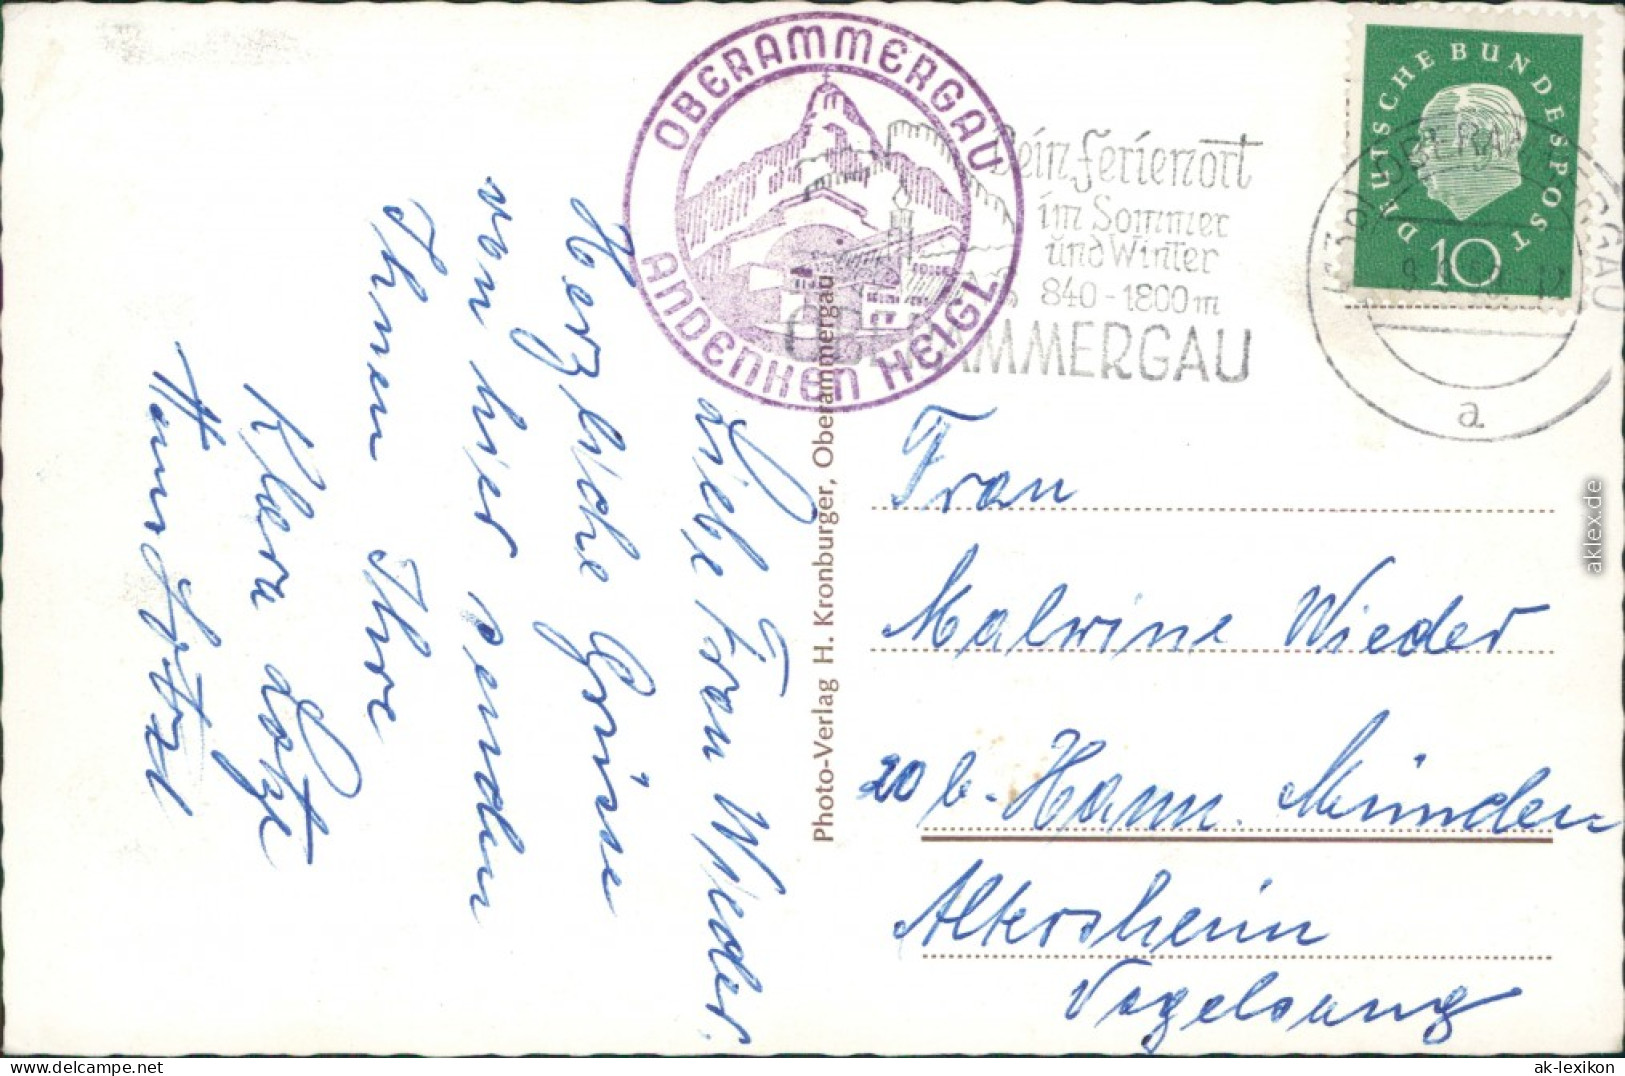 OBERAMMERGAU
ANDENKEN HEIGL
Dein Ferienort
im Sommer
und Winter
840-1800 m
OBERAMMERGAU
DEUTSCHE BUNDESPOST
10
OBERAMMERGAU
a
Liebe Frau Wieder.
Herzliche Grüsse
von hier senden
Ihnen Ihre
Klara Lotze
Photo-Verlag H. Kronburger, Oberammergau
Frau
Malwine Wieder
20 b - Hann. Münden
Altersheim
Vogelsang
aklex.de
www.delcampe.net
ak-lexikon